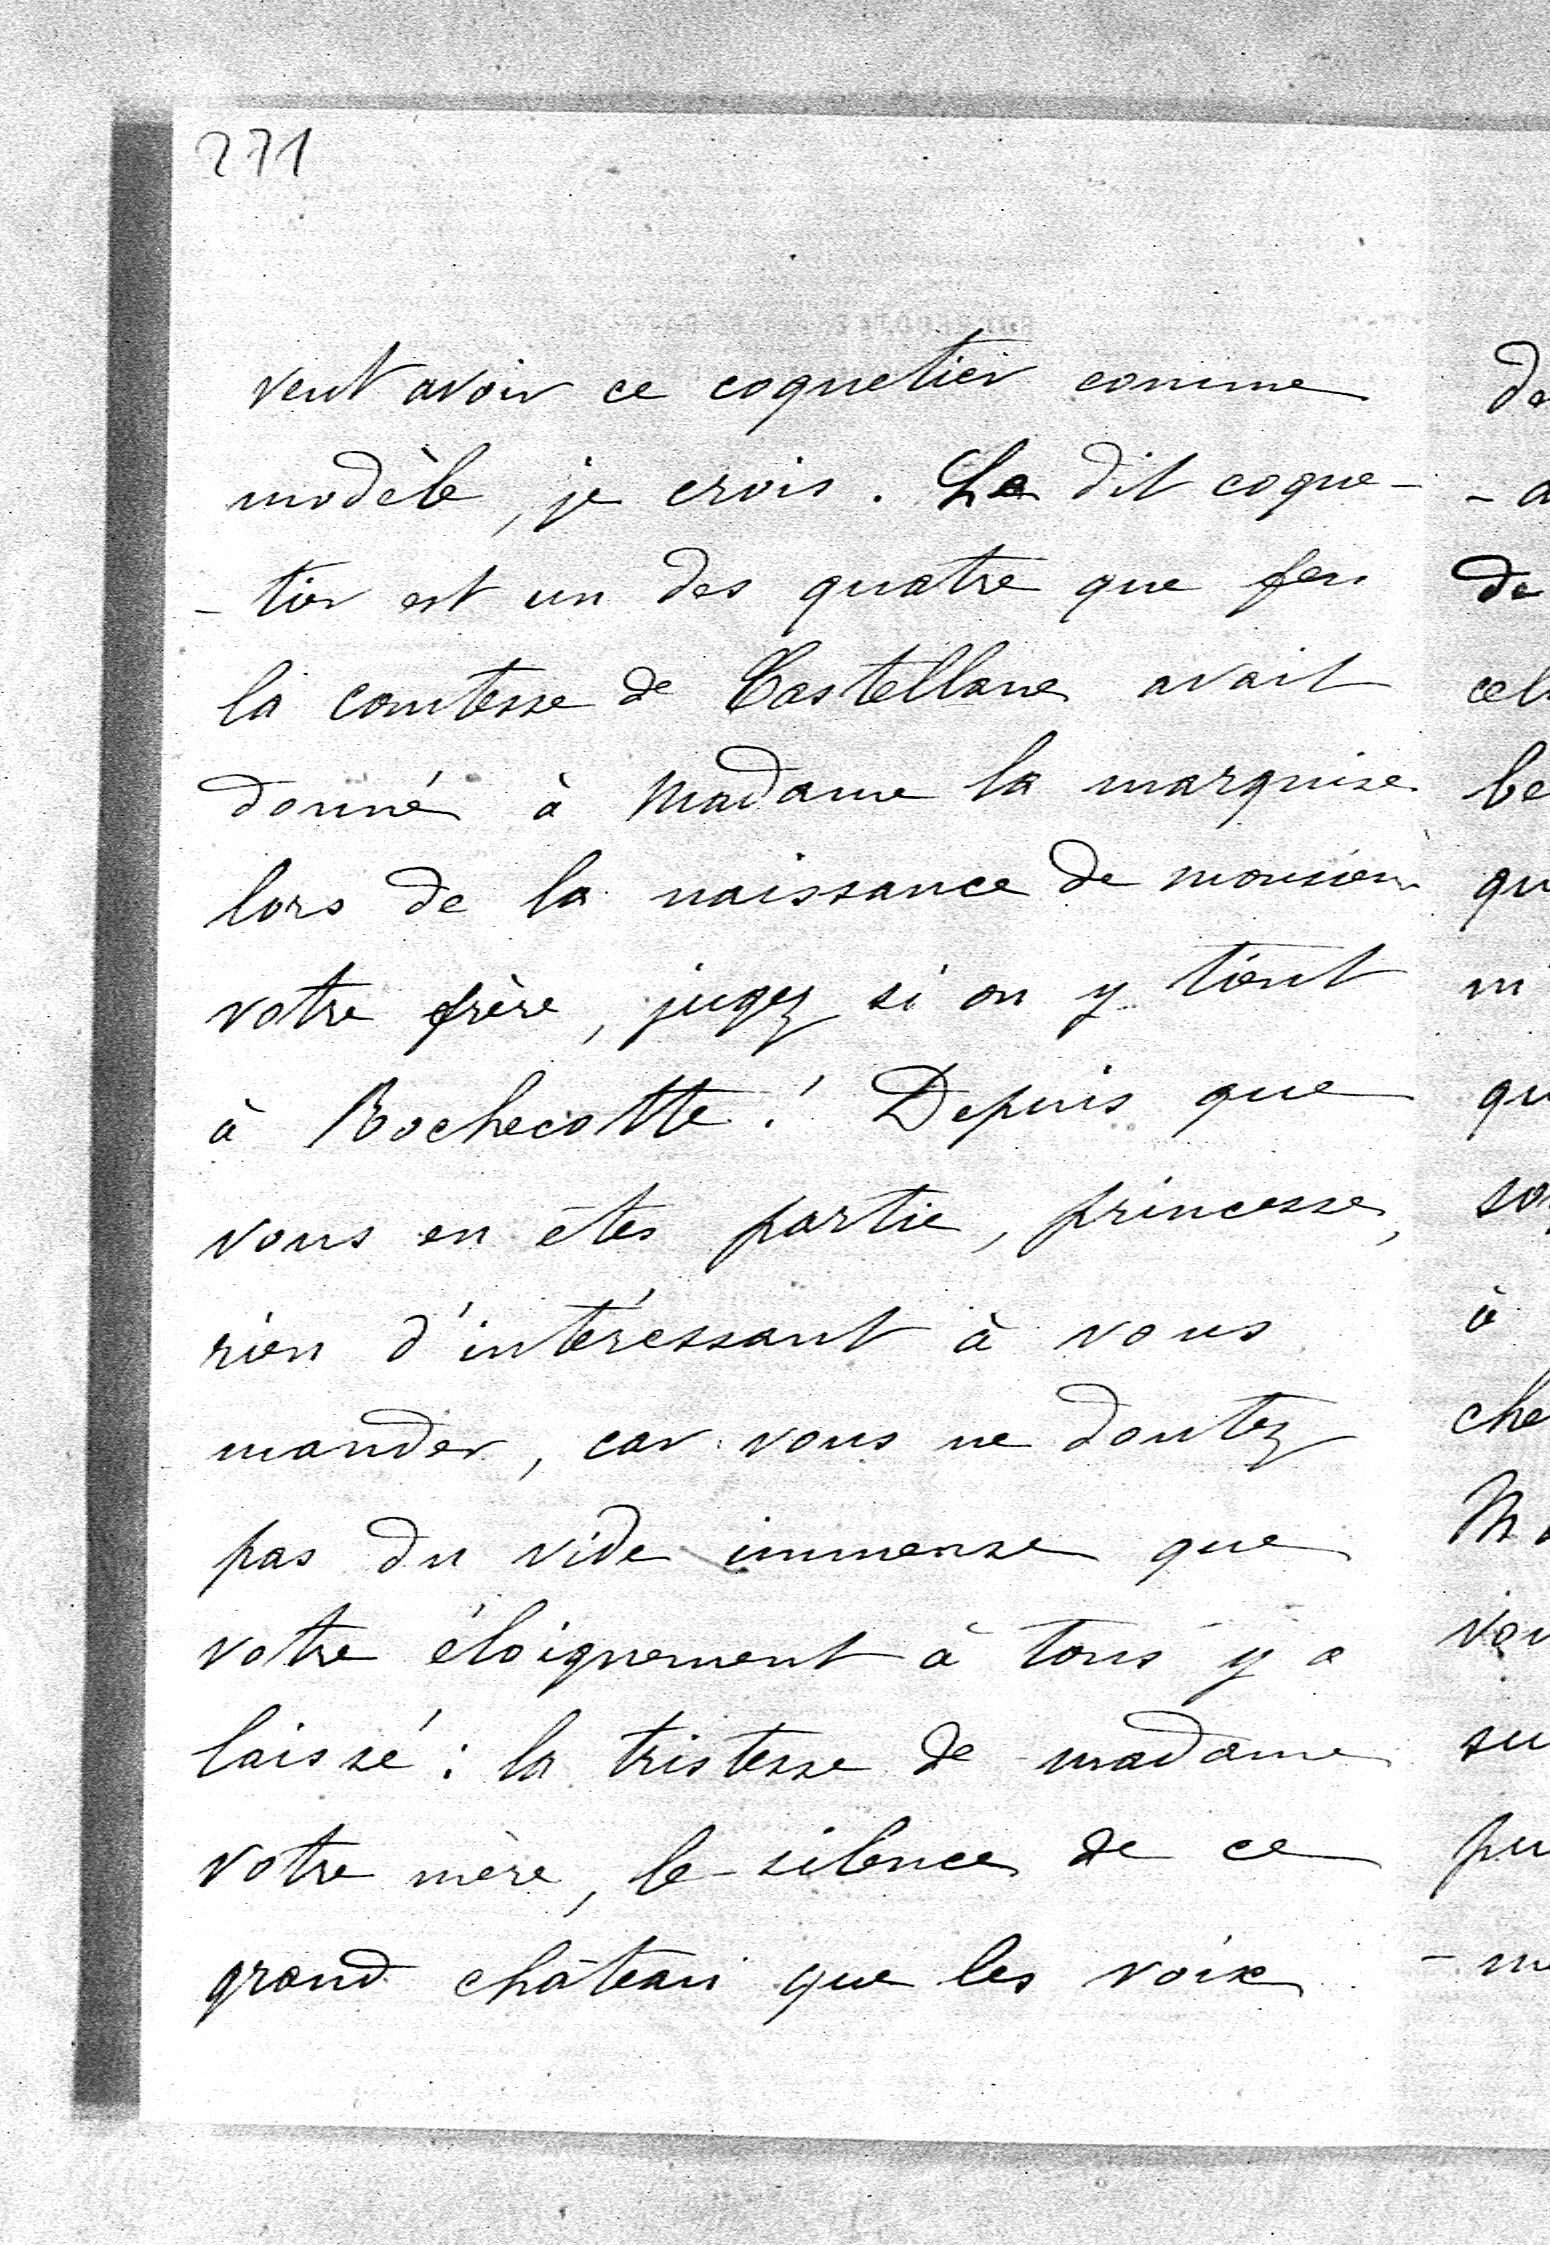 271
veut avoir ce coquetier comme
modèle, je crois. Le dit coque-
-tier est un des quatre que feu
la comtesse de Castellane avait
donné à Madame la marquise
lors de la naissance de monsieur
votre frère, jugez si on y tient
à Rochecotte! Depuis que
vous en êtes partie, princesse,
rien d'intéressant à vous
mander, car vous ne doutez
pas du vide immense que
votre éloignement à tous y a
laissé: la tristesse de madame
votre mère, le silence de ce
grand château que les voix
de
cel
be
qu
m'
qu
à
che
vou
su
pu